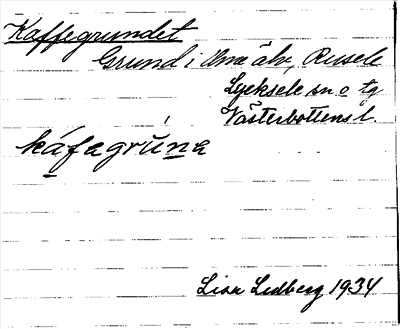 Kaffegrundet
Grund i Ume älv, Rusele
Lycksele sn o tg
Västerbottens l.
káfagrúna
Lisa Lidberg 1934